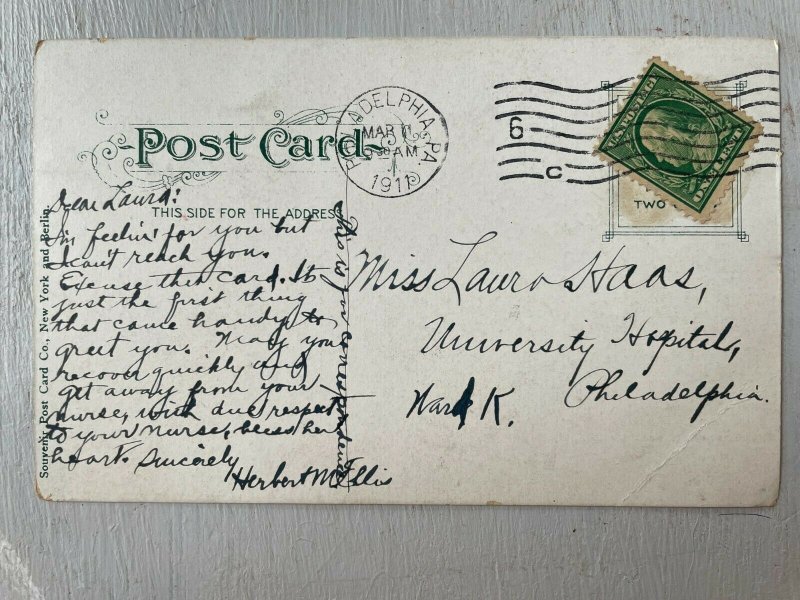 Post Card
THIS SIDE FOR THE ADDRESS
PHILADELPHIA, PA.
MAR
AM
1911
6
C
WASHINGTON
ONE CENT
TWO
Souvenir Post Card Co., New York and Berlin.
Dear Laura:
I'm feelin' for you but
I can't reach you.
Excuse this card. Its
just the first thing
that came handy to
greet you. May you
recover quickly and
get away from your
nurse, with due respect
to your nurse, bless her
heart. Sincerely
Herbert M Ellis
This is for correspondence
Miss Laura Haas,
University Hospital,
Philadelphia.
Ward K.